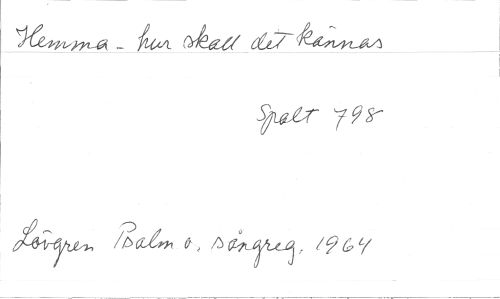 Hemma - hur skall det kännas
Spalt 798
Lövgren Psalm o. sångreg. 1964